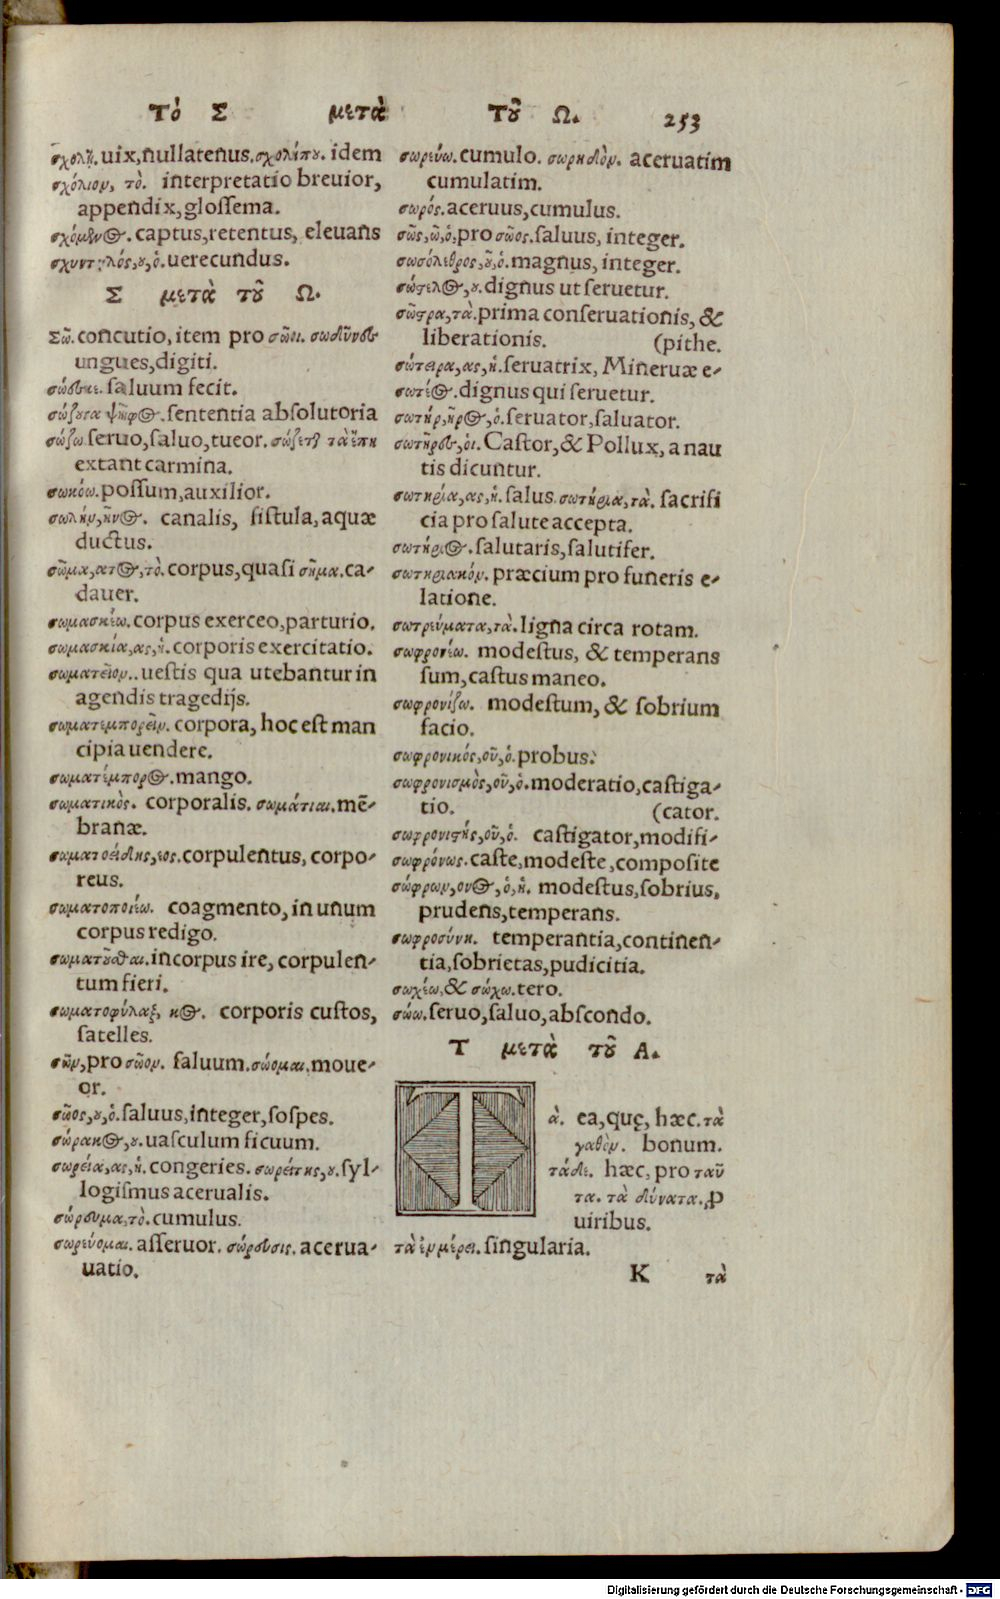 Τὸ Σ μετὰ Τοῦ Ω. 253
σχολῇ. uix, nullatenus. σχολήπου. idem
σχόλιον, τὸ. interpretatio breuior,
appendix, glossema.
σχόμενος. captus, retentus, eleuans
σχυντηλός, ου, ὁ. uerecundus.
Σ μετὰ τοῦ Ω.
Σῶ. concutio, item pro σῶοι.
ungues, digiti.
σώσσκε. saluum fecit.
σώζουσα ψῆφος. sententia absolutoria
σώζω seruo, saluo, tueor. σώζεται τὰ ἔπη
extant carmina.
σωκόω. possum, auxilior.
σωλὴν, ῆνος. canalis, fistula, aquæ
ductus.
σῶμα, ατος, τὸ. corpus, quasi σῆμα. ca-
dauer.
σωμασκέω. corpus exerceo, parturio.
σωμασκία, ας, ἡ. corporis exercitatio.
σωματεῖον.. uestis qua utebantur in
agendis tragedijs.
σωματεμπορεῖν. corpora, hoc est man
cipia uendere.
σωματέμπορος. mango.
σωματικὸς. corporalis. σωμάτιαι. mē-
branæ.
σωματοείδης, εος. corpulentus, corpo-
reus.
σωματοποιέω. coagmento, in unum
corpus redigo.
σωματοῦσθαι. in corpus ire, corpulen-
tum fieri.
σωματοφύλαξ, κος. corporis custos,
satelles.
σῶν, pro σῶον. saluum. σώομαι. moue-
or.
σῶος, ου, ὁ. saluus, integer, sospes.
σώρακος, ου. uasculum ficuum.
σωρεία, ας, ἡ. congeries. σωρείτης, ου. syl-
logismus acerualis.
σώρευμα, τὸ. cumulus.
σωρεύομαι. asseruor. σώρευσις. acerua-
uatio.
σωρεύω. cumulo. σωρηδὸν. aceruatim
cumulatim.
σωρός. aceruus, cumulus.
σῶς, ῶ, ὁ, pro σῶος. saluus, integer.
σωσόλεθρος, ου, ὁ. magnus, integer.
σώστελος, ου. dignus ut seruetur.
σῶστρα, τὰ. prima conseruationis, &
liberationis. (pithe.
σώτειρα, ας, ἡ. seruatrix, Mineruæ e-
σωτέος. dignus qui seruetur.
σωτήρ, ῆρος, ὁ. seruator, saluator.
σωτῆρες, οἱ. Castor, & Pollux, a nau
tis dicuntur.
σωτηρία, ας, ἡ. salus. σωτήρια, τὰ. sacrifi
cia pro salute accepta.
σωτήριος. salutaris, salutifer.
σωτηριακόν. præcium pro funeris e-
latione.
σωτρεύματα, τὰ. ligna circa rotam.
σωφρονέω. modestus, & temperans
sum, castus maneo.
σωφρονίζω. modestum, & sobrium
facio.
σωφρονικός, οῦ, ὁ. probus.
σωφρονισμὸς, οῦ, ὁ. moderatio, castiga-
tio. (cator.
σωφρονιστής, οῦ, ὁ. castigator, modifi-
σωφρόνως. caste, modeste, composite
σώφρων, ονος, ὁ, ἡ. modestus, sobrius,
prudens, temperans.
σωφροσύνη. temperantia, continen-
tia, sobrietas, pudicitia.
σωχέω, & σώχω. tero.
σώω. seruo, saluo, abscondo.
Τ μετὰ τοῦ Α.
Τὰ. ea, quę, hæc. τὰ
γαθὸν. bonum.
τάδε. hæc, pro ταῦ
τα. τὰ δύνατα. ꝓ
uiribus.
τὰ ἐν μέρει. singularia.
K τὰ
Digitalisierung gefördert durch die Deutsche Forschungsgemeinschaft - DFG